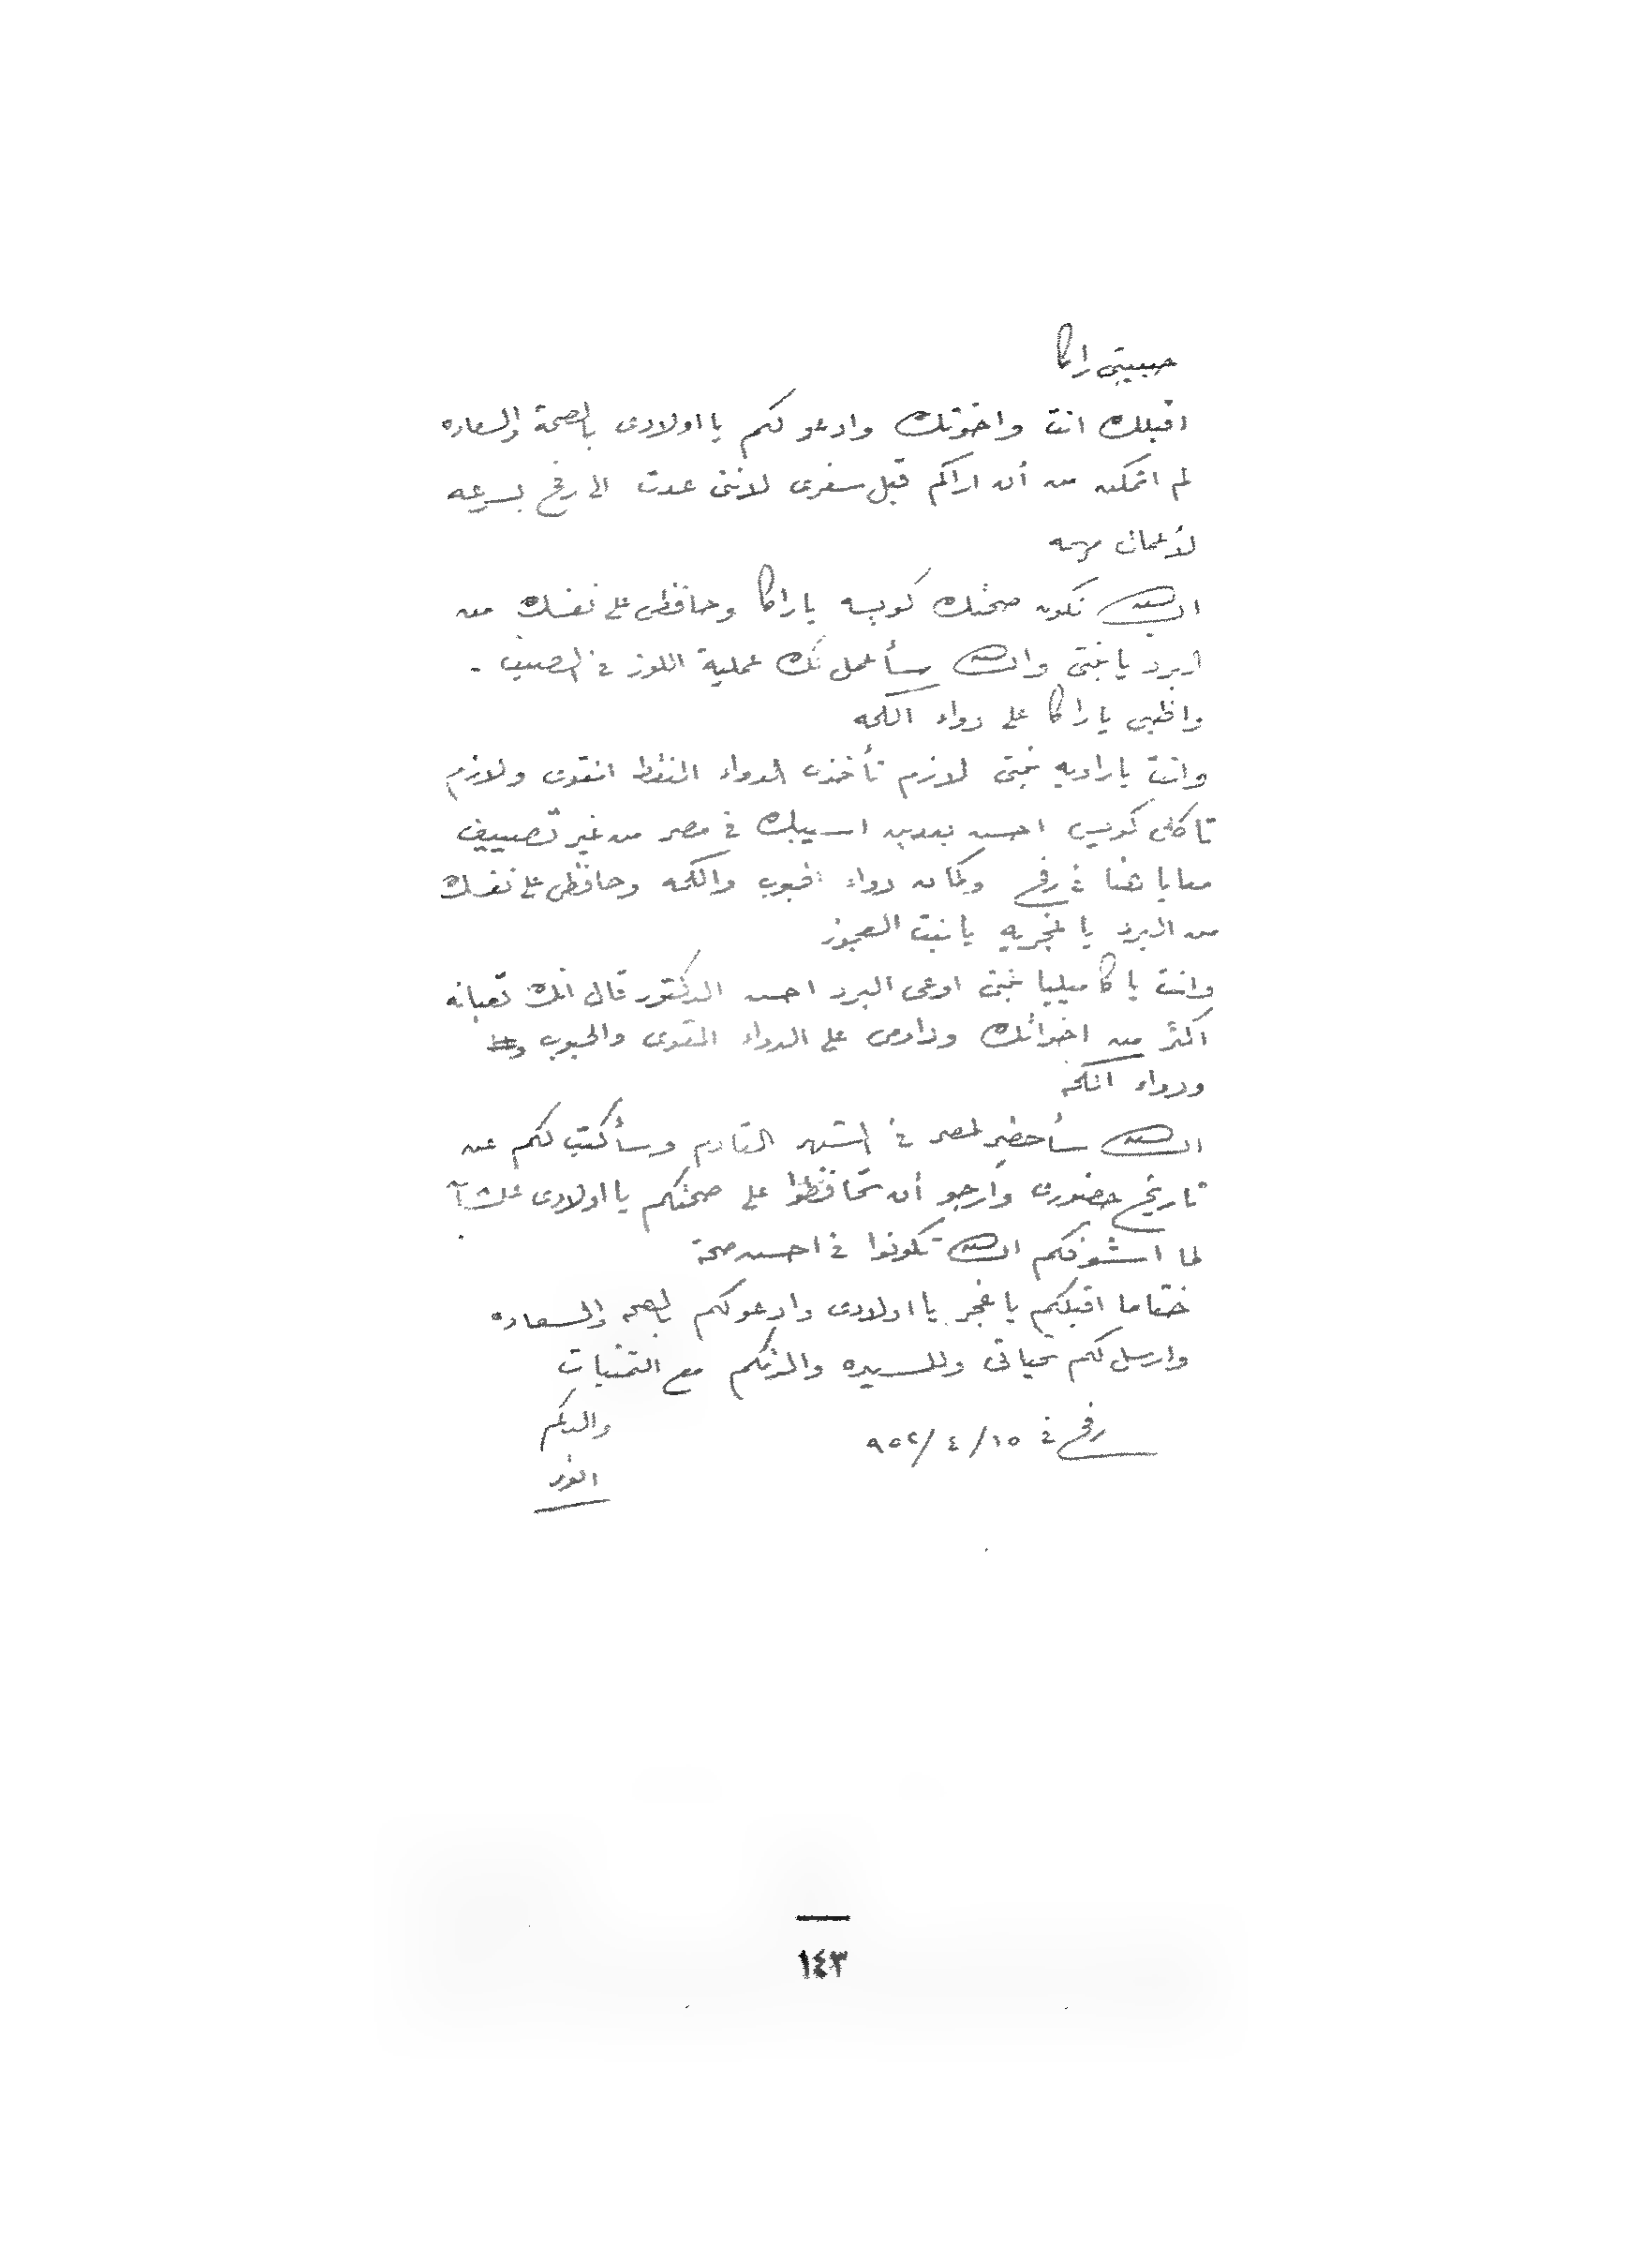 حبيبتى راكا
اقبلك انت واخوتك وادعو لكم يا اولادى بالصحة والسعاده
لم اتمكن من أن اراكم قبل سفرى لاننى عدت الى رفح بسرعه
لأعمال مهمه
ان شاء الله تكون صحتك كويسه يا راكا وحافظى على نفسك من
البرد يا بنتى وان شاء الله سأعمل لك عملية اللوز فى الصيف -
واظبى يا راكا على دواء الكحه
وانت يا راويه بنتى لازم تأخذى الدواء النقط المقوى ولازم
تاكلى كويس احسن بعدين اسيبك فى مصر من غير تصييف
معايا هنا فى رفح وكمان دواء الحبوب والكحه وحافظى على نفسك
من البرد يا غجريه يا بنت العجوز
وانت يا كاميليا بنتى اوعى البرد احسن الدكتور قال انك تعبانه
اكثر من اخواتك وداومى على الدواء المقوى والحبوب
ودواء الكحه
ان شاء الله سأحضر لمصر فى الشهر القادم وسأكتب لكم عن
تاريخ حضورى وأرجو أن تحافظوا على صحتكم يا اولادى علشان
لما اشوفكم ان شاء الله تكونوا فى احسن صحة
ختاما اقبلكم يا غجر يا اولادى وادعو لكم بالصحه والسعاده
وارسل لكم تحياتى وللسيده والدتكم مع التمنيات
والدكم
رفح فى ١٥/٤/٩٥٢
انور
١٤٣